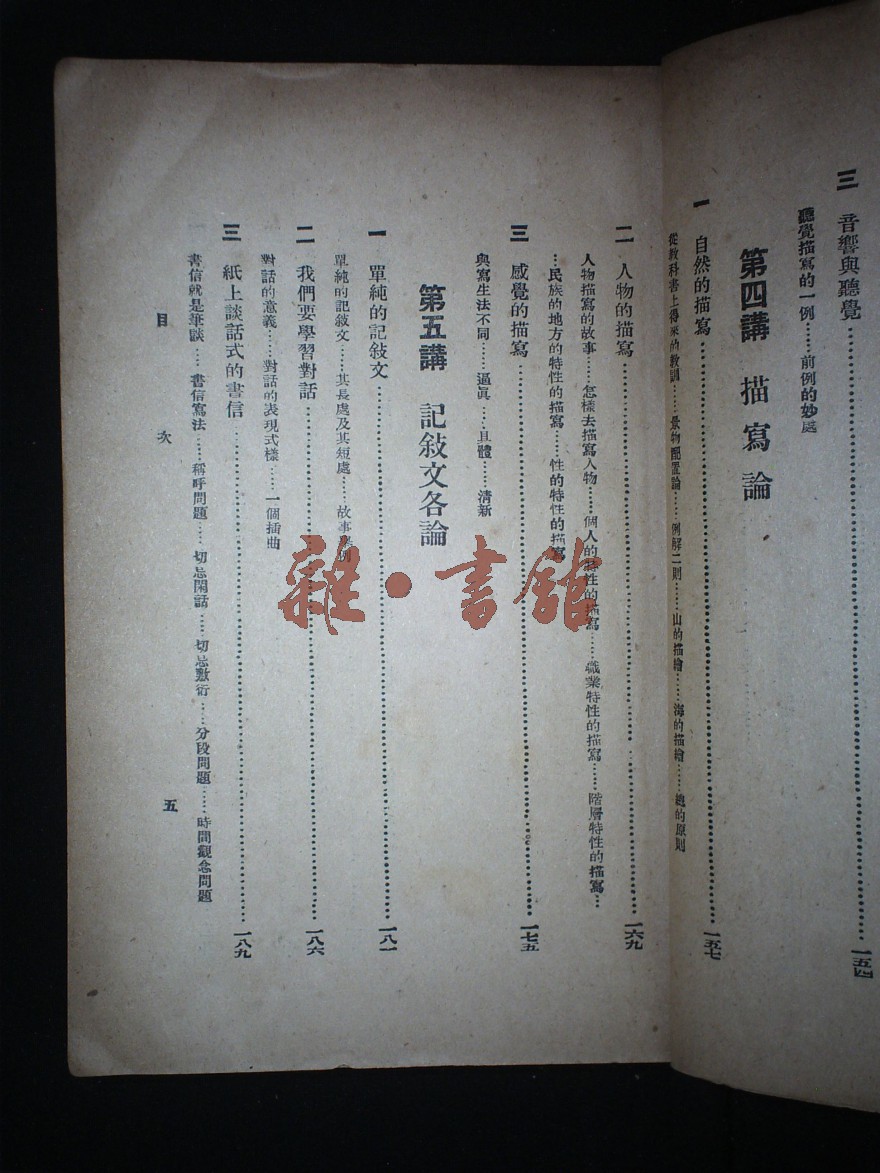 三　音響與聽覺……一五四
聽覺描寫的一例……前例的妙處
第四講　描寫論
一　自然的描寫……一五七
從教科書上得來的教訓……景物配置論……例解二則……山的描繪……海的描繪……總的原則
二　人物的描寫……一六九
人物描寫的故事……怎樣去描寫人物……個人的特性的描寫……職業特性的描寫……階層特性的描寫…
…民族的地方的特性的描寫……性的特性的描寫
三　感覺的描寫……一七五
與寫生法不同……逼眞……具體……清新
第五講　記敍文各論
一　單純的記敍文……一八一
單純的記敍文……其長處及其短處……故事 例
二　我們要學習對話……一八六
對話的意義……對話的表現式樣……一個插曲
三　紙上談話式的書信……一八九
書信就是筆談……書信寫法……稱呼問題……切忌閑話……切忌敷衍……分段問題……時間觀念問題
目　次　五
雜·書館